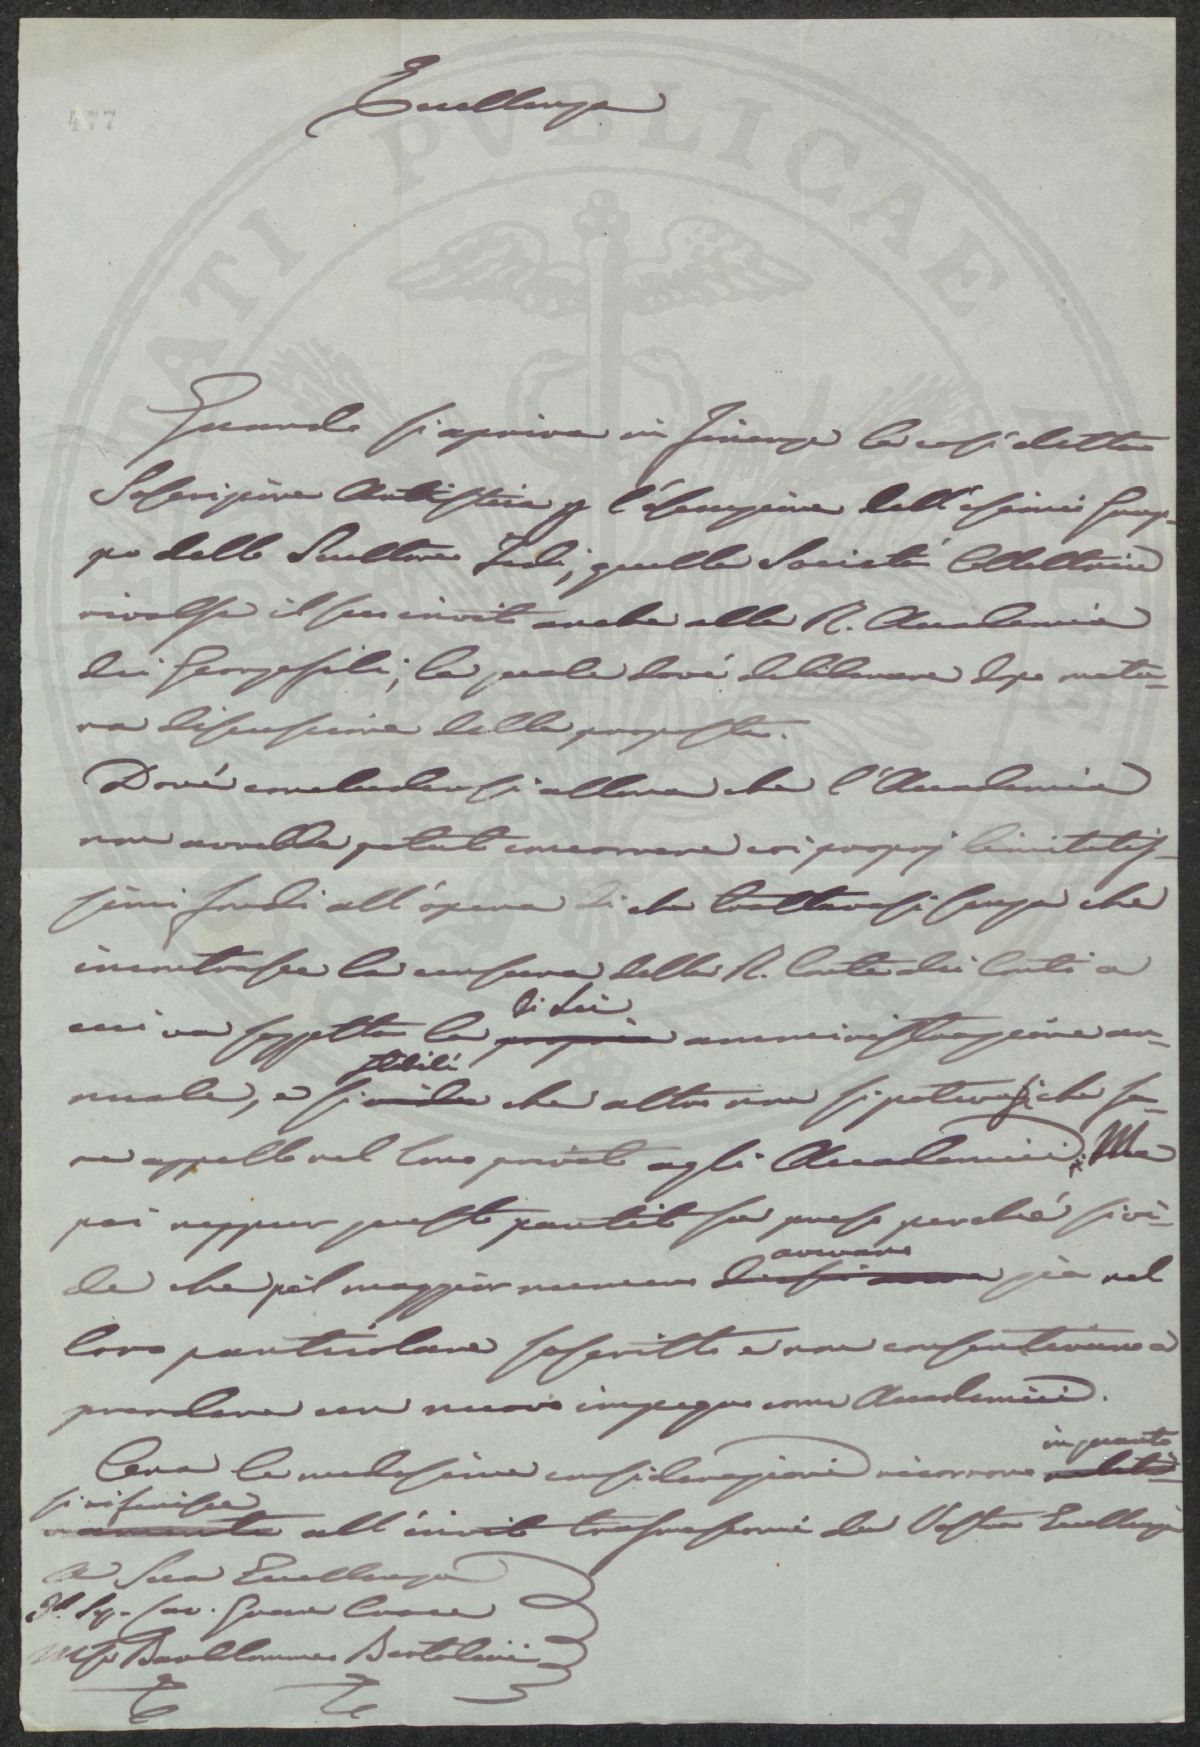 477
Eccellenza
Quando si apriva in Firenze la così detta
Soscrizione Artistica p l'esecuzione dell'esimio Grup-
po dello Scultore Fedi, quella Società Collettrice
rivolse il suo invito anche alla R. Accademia
dei Georgofili; la quale dové deliberare dopo matu-
ra discussione della proposta.
Dové concludersi allora che l'Accademia
non avrebbe potuto concorrere coi proprj limitatis-
simi fondi all'opera di che trattavasi senza che
incontrasse la censura della R. Corte dei Conti a
di Lei
cui va soggetta la propria amministrazione an-
stabilì
nuale, e si che altro non si potesse che fa-
re appello nel loro privato agli Accademici. Ma
poi neppur questo partito fu preso perché si vi-
avevano
de che pel maggior numero già nel
loro particolare soscritto e non consentivano a
prendere un nuovo impegno come Accademici.
in quanto
Ora le medesime considerazioni ricorrono relati-
si riferisce
vamente all'invito trasmessomi da Vostra Eccellenza
A Sua Eccellenza
Il Sig. Cav. Gran Croce
March. Bartolommeo Bartolini
PVBLICAE